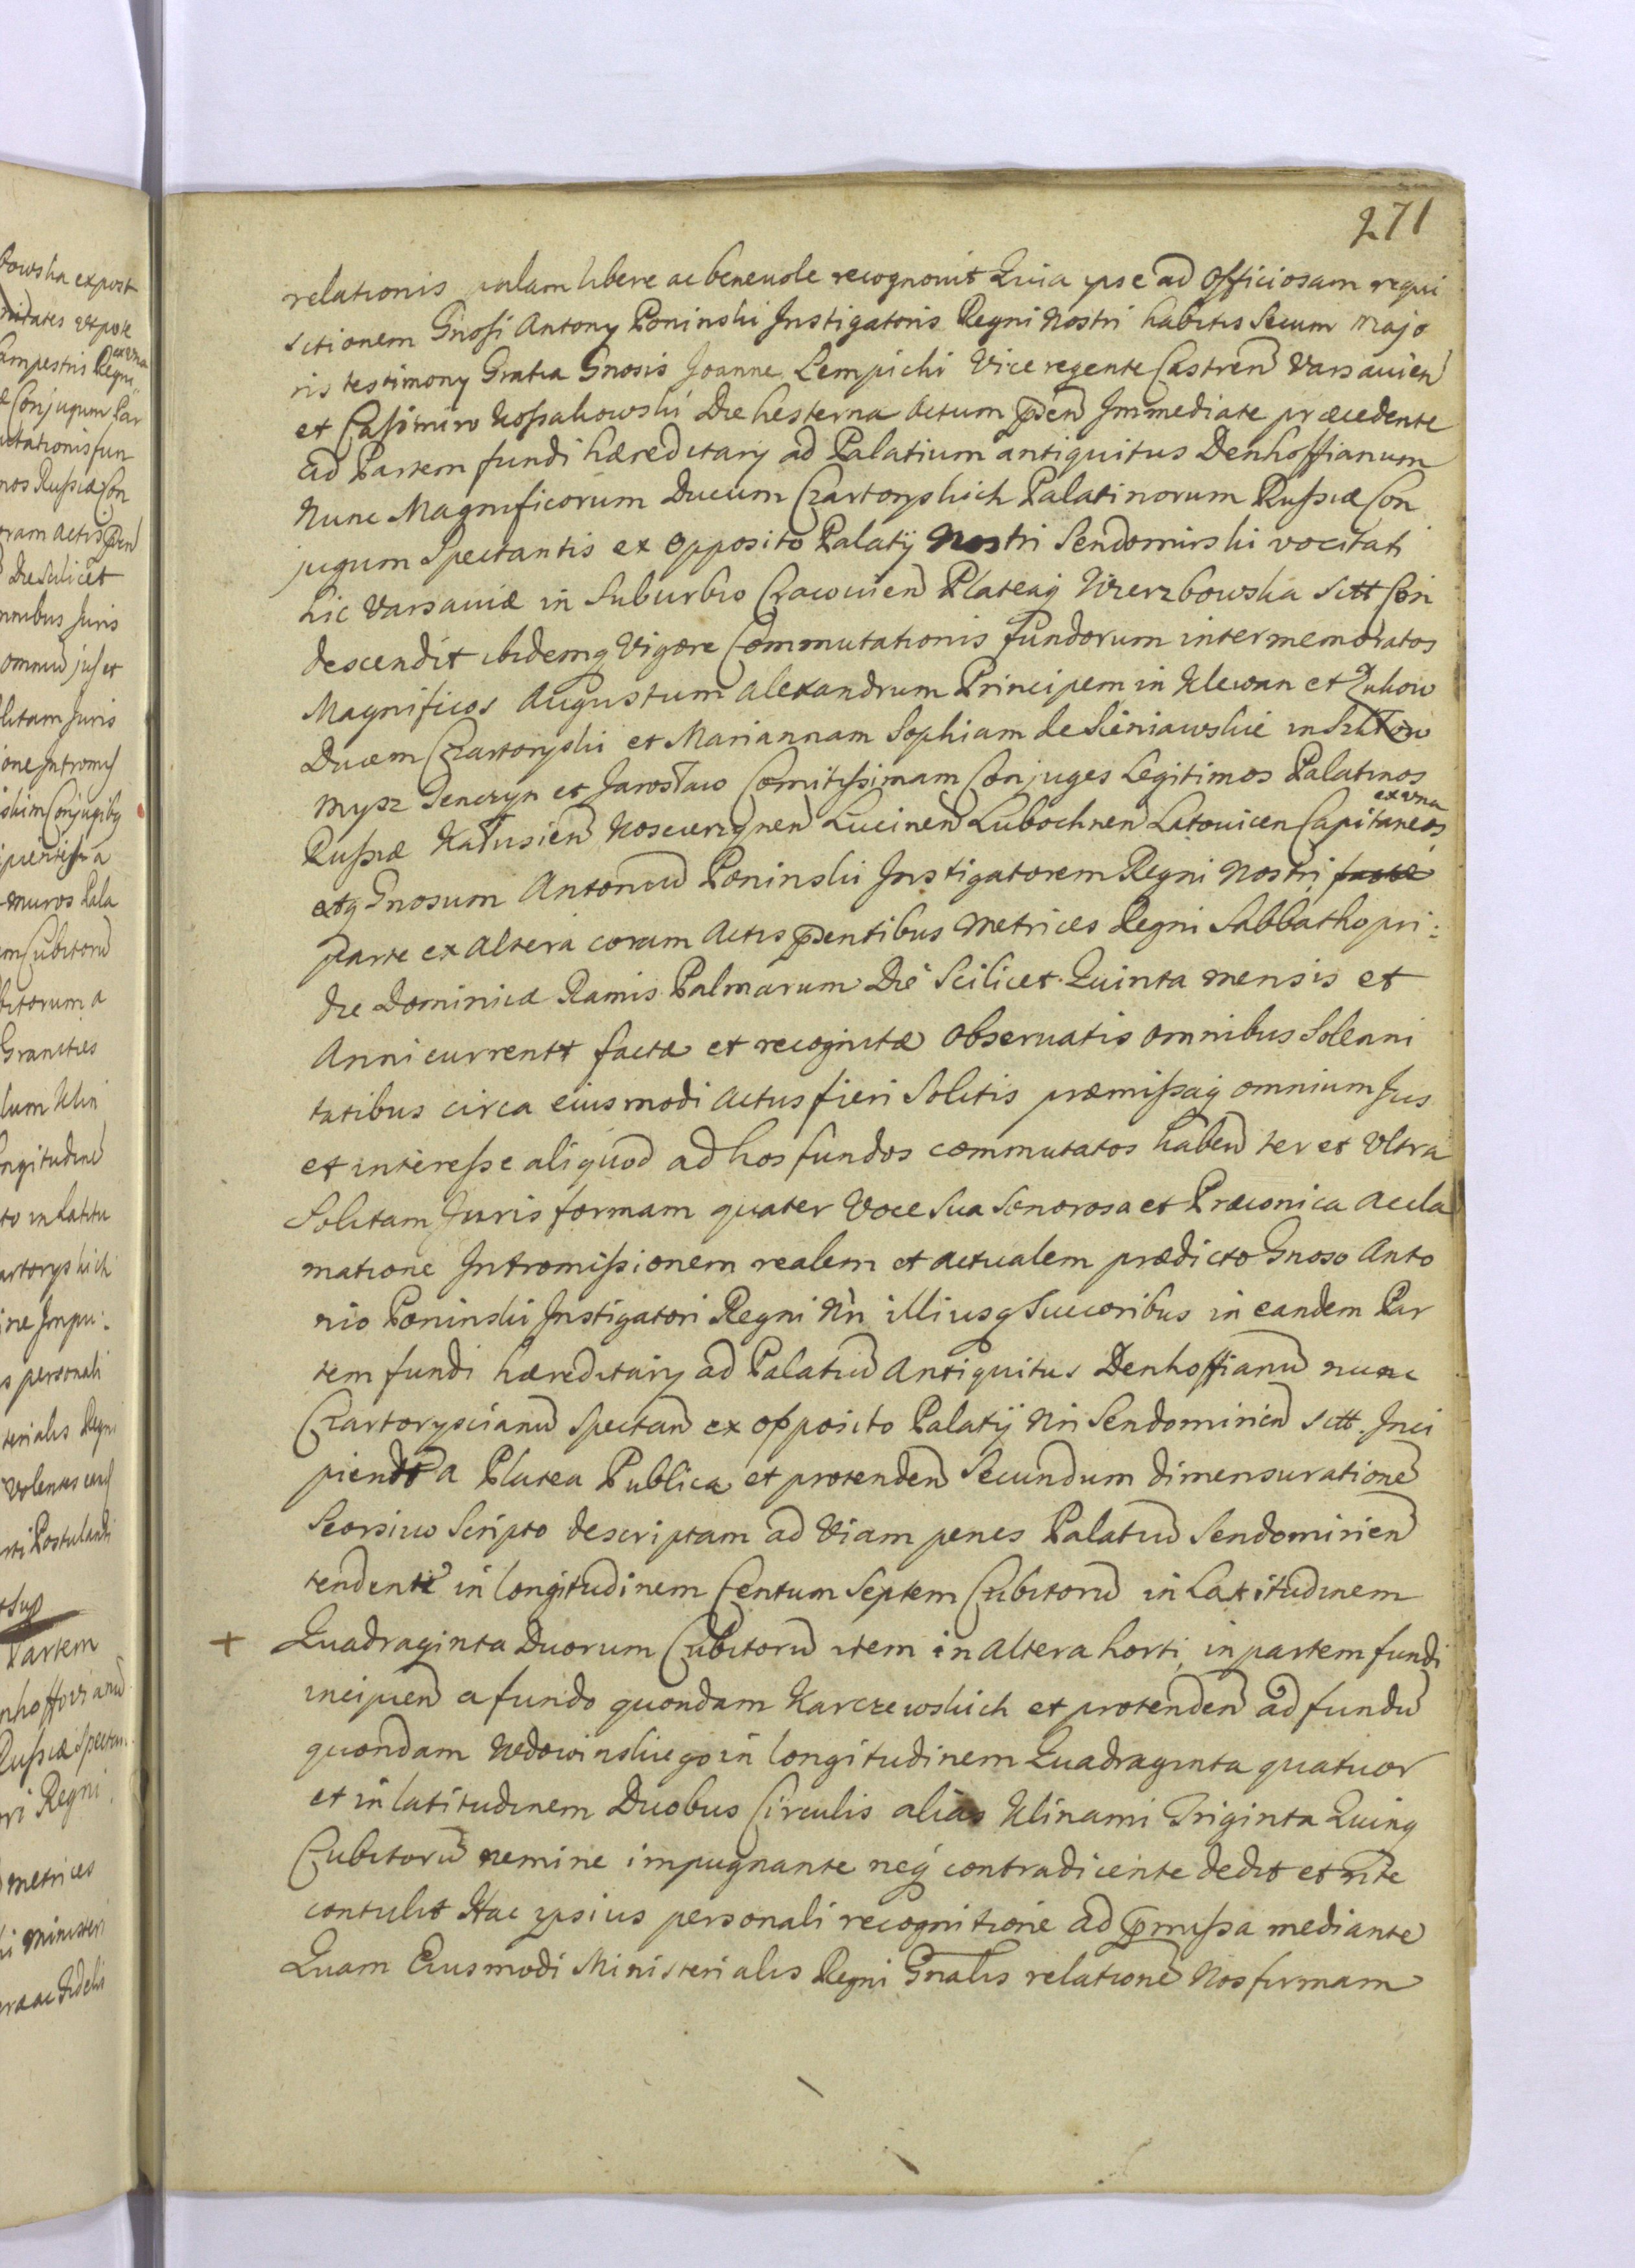 271
relationis palam libere ac beneuole recognouit Quia ipse ad Officiosam requi
sitionem Gnosi Antony Poninski Instigatoris Regni Nostri habitis Secum Majo
ris testimony Gratia Gnosis Joanne Lempicki Vice regente Castren Varsauien
et Casimiro Kossakowski Die hesterna Actum pñen Immediate præcedente
ad Partem fundi hæreditary ad Palatium antiquitus Denhoffianum
Nunc Magnificorum Ducum Czartoryskich Palatinorum Russiæ Con
jugum Spectantis ex Opposito Palaty Nostri Sendomirski vocitati
hic Varsauiæ in Suburbio Cracouien Plateaq Wierzbowska Sitt Con
descendit ibidemq Vigore Commutationis fundorum inter memoratos
Magnificos Augustum Alexandrum Principem in Klewan et Zukow
Ducem Czartoryski et Mariannam Sophiam de Sieniawskie in Szkłow
Mysz Tenczyn et Jarosław Comitissimam Conjuges Legitimos Palatinos
ex vna
Russiæ Kałusien Koscierzynen Lucinen Lubochnen Latouicen Capitaneos
atq Gnosum Antoniu Poninski Instigatorem Regni Nostri
parte ex altera coram Actis pñentibus Metrices Regni Sabbatho pri:
die Dominicæ Ramis Palmarum Die Scilicet Quinta mensis et
Anni currentt factæ et recognitæ Observatis omnibus Solenni
tatibus circa eiusmodi Actus fieri Solitis præmissaq omnium Jus
et interesse aliquod ad hos fundos commutatos haben ter et Vltra
Solitam Juris formam quater Voce Sua Sonorosa et Præconica Accla
matione Intromissionem realem et actualem prædicto Gnoso Anto
nio Poninski Instigatori Regni Nri illiusq Succoribus in eandem Par
tem fundi hæreditary ad Palatiu Antiquitus Denhoffianu nunc
Czartoryscianu Spectan ex opposito Palaty Nri Sendomirien sitt. Inci
piendt a Platea Publica et protenden Secundum dimensuratione
Seorsiuo Scripto descriptam ad Viam penes Palatiu Sendomirien
tendente in longitudinem Centum Septem Cubitoru in Latitudinem
+ Quadraginta Duorum Cubitoru item in altera horti in partem fundi
incipien a fundo quondam Karczewskich et protenden ad fundu
quondam Wdowinskiego in longitudinem Quadraginta quatuor
et in latitudinem Duobus Circulis alias Klinami Triginta Quinq
Cubitoru nemine impugnante neq contradicente dedit et rite
contulit Hac ipsius personali recognitione ad pmissa mediante
Quam Eiusmodi Ministerialis Regni Gnalis relatione Nos firmam